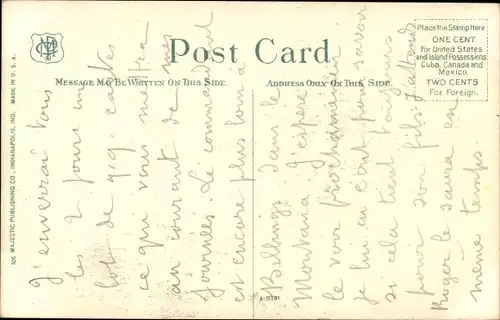 Post Card
MESSAGE MAY BE WRITTEN ON THIS SIDE
ADDRESS ONLY ON THIS SIDE.
Place the Stamp Here
ONE CENT
for United States
and Island Possessions
Cuba, Canada and
Mexico.
TWO CENTS
For Foreign.
105 MAJESTIC PUBLISHING CO., INDIANAPOLIS, IND. MADE IN U.S.A.
A-9781
J'enverrai tous
les 2 jours un
lot de qq. cartes
ce qui vous mettra
au courant de mes
journées. Le commandant
est encore plus loin à
Billings dans le
Montana J'espère
le voir prochainement
je lui ai écrit pour savoir
si cela tient toujours
pour son fils J'attends
Roger le saura en
même temps.